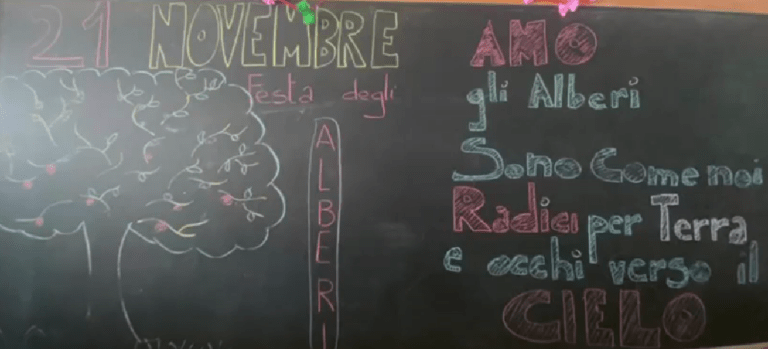 21 NOVEMBRE
Festa degli
ALBERI
AMO
gli Alberi
Sono Come noi
Radici per Terra
e occhi verso il
CIELO